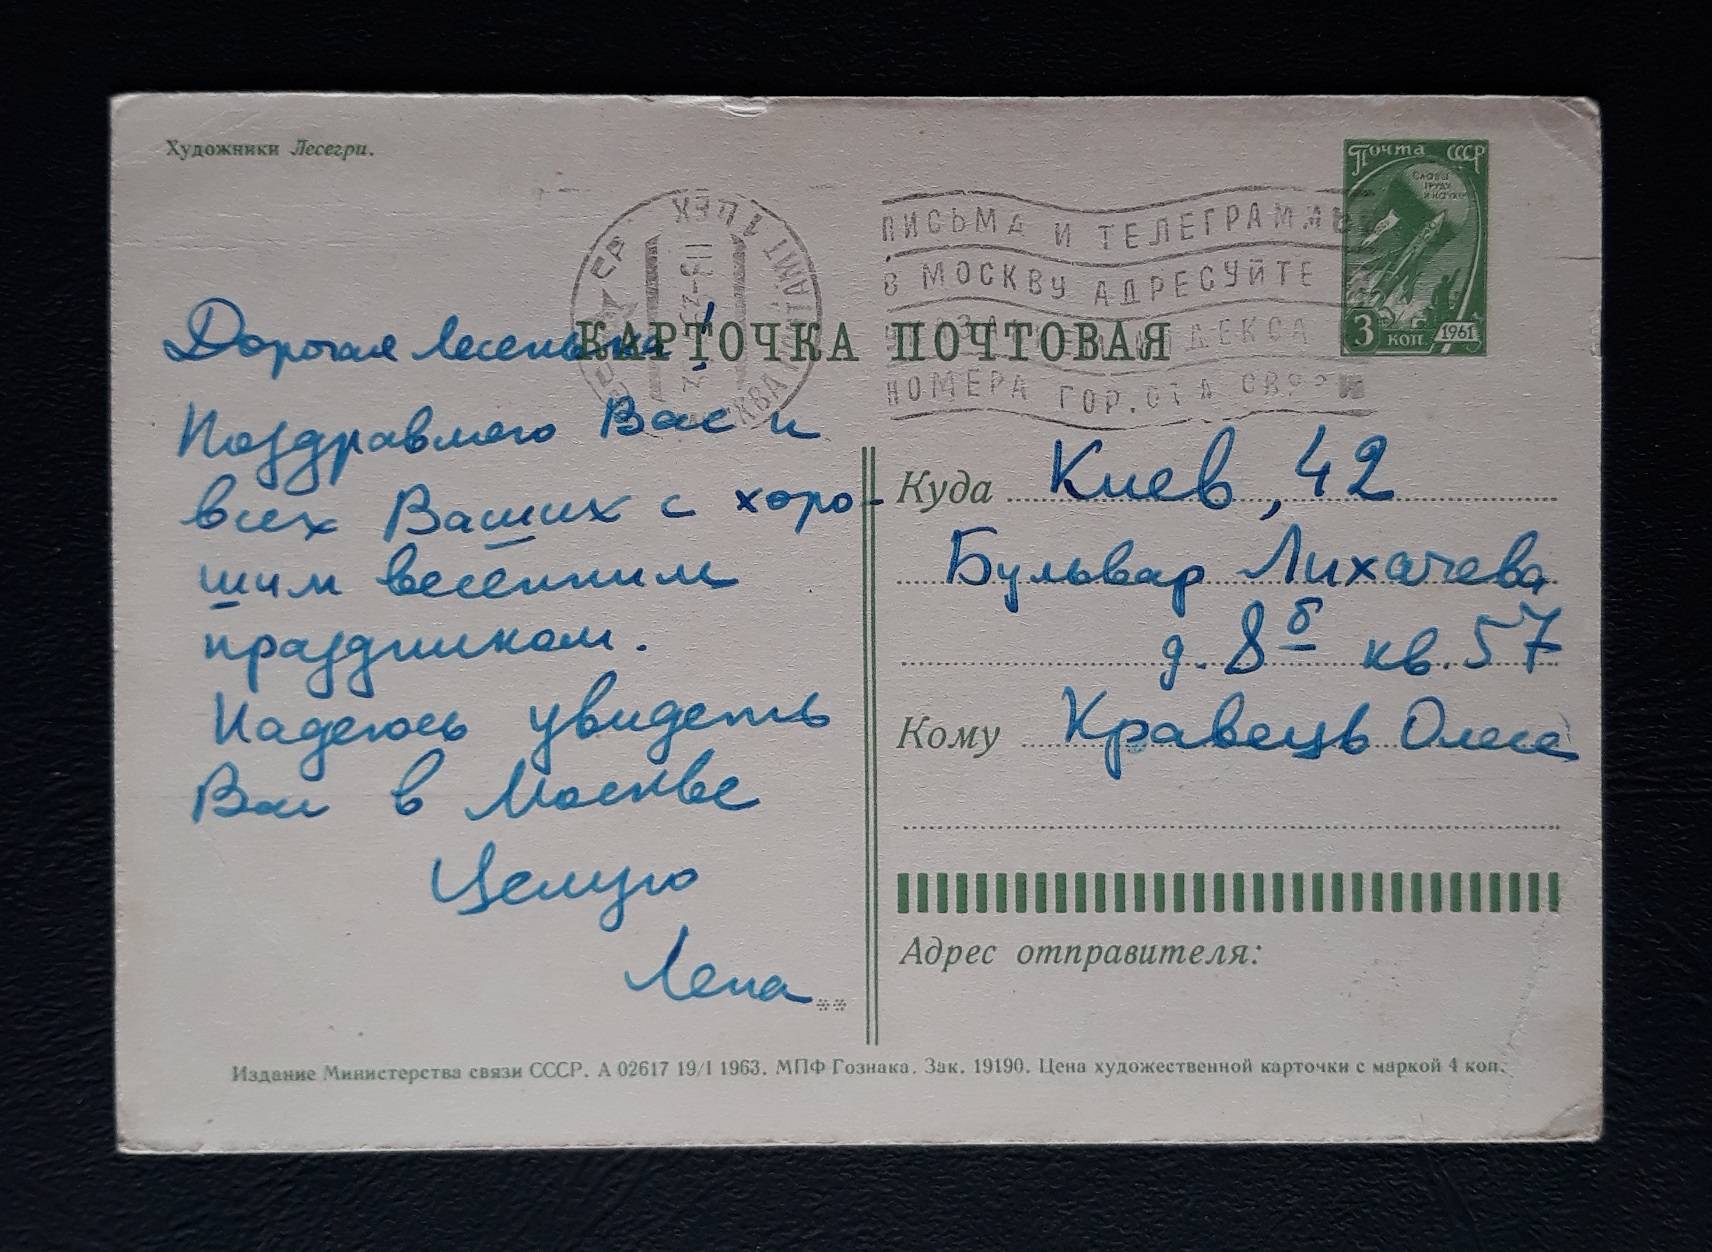 Художники Лесегри.
Почта СССР
СЛАВА
ТРУДУ
И НАУКЕ
3 коп 1961
1 ЦЕХ
ПОЧТАМТ
МОСКВА
ПИСЬМА И ТЕЛЕГРАММЫ
В МОСКВУ АДРЕСУЙТЕ
НОМЕРА ГОР. ОТД СВЯЗИ
КАРТОЧКА ПОЧТОВАЯ
Дорогая Лесенька!
Поздравляю Вас и
всех Ваших с хоро-
шим весенним
праздником.
Надеюсь увидеть
Вас в Москве
Целую
Лена
Куда Киев, 42
Бульвар Лихачева
д. 8б кв. 57
Кому Кравець Олесе
Адрес отправителя:
Издание Министерства связи СССР. А 02617 19/I 1963. МПФ Гознака. Зак. 19190. Цена художественной карточки с маркой 4 коп.